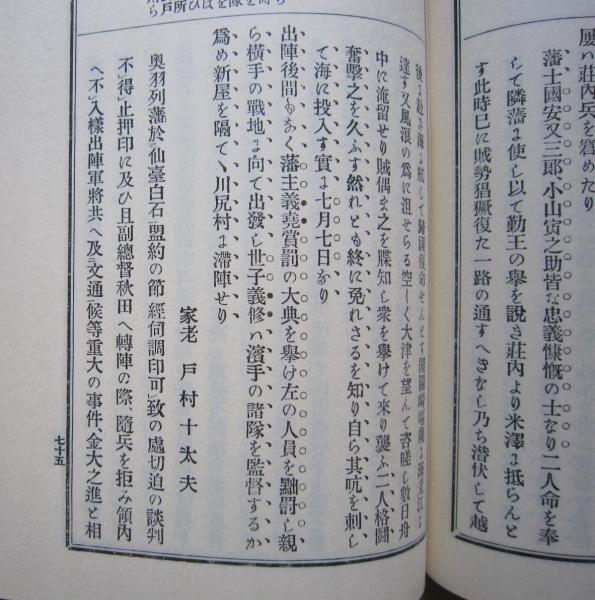 屡ハ莊內兵を窘めたり
藩士國安又三郎、小山寅之助皆な忠義慷慨の士なり二人命を奉
して隣藩に使し以て勤王の擧を説き莊內より米澤に抵らんと
す此時巳に賊勢猖獗復た一路の通すへきなし乃ち潜伏して越
後に
達す又風浪の爲に沮せらる空しく大津を望んて咨嗟し數日舟
中に淹留せり賊偶ま之を諜知し衆を擧けて來り襲ふ二人格鬪
奮擊之を久ふす然れとも終に免れさるを知り自ら其吭を刺し
て海に投入す實に七月七日なり
出陣後間もあく藩主義堯賞罰の大典を擧け左の人員を黜罰し親
ら橫手の戰地に向て出發し世子義修ハ濱手の諸隊を監督するか
爲め新屋を隔てゝ川尻村に滯陣せり
家老 戶村十太夫
奧羽列藩於仙臺白石盟約の節經伺調印可致の處切迫の談判
不得止押印に及ひ且副總督秋田へ轉陣の際、隨兵を拒み領內
へ不入樣出陣軍將共へ及文通候等重大の事件、金大之進と相
七十五